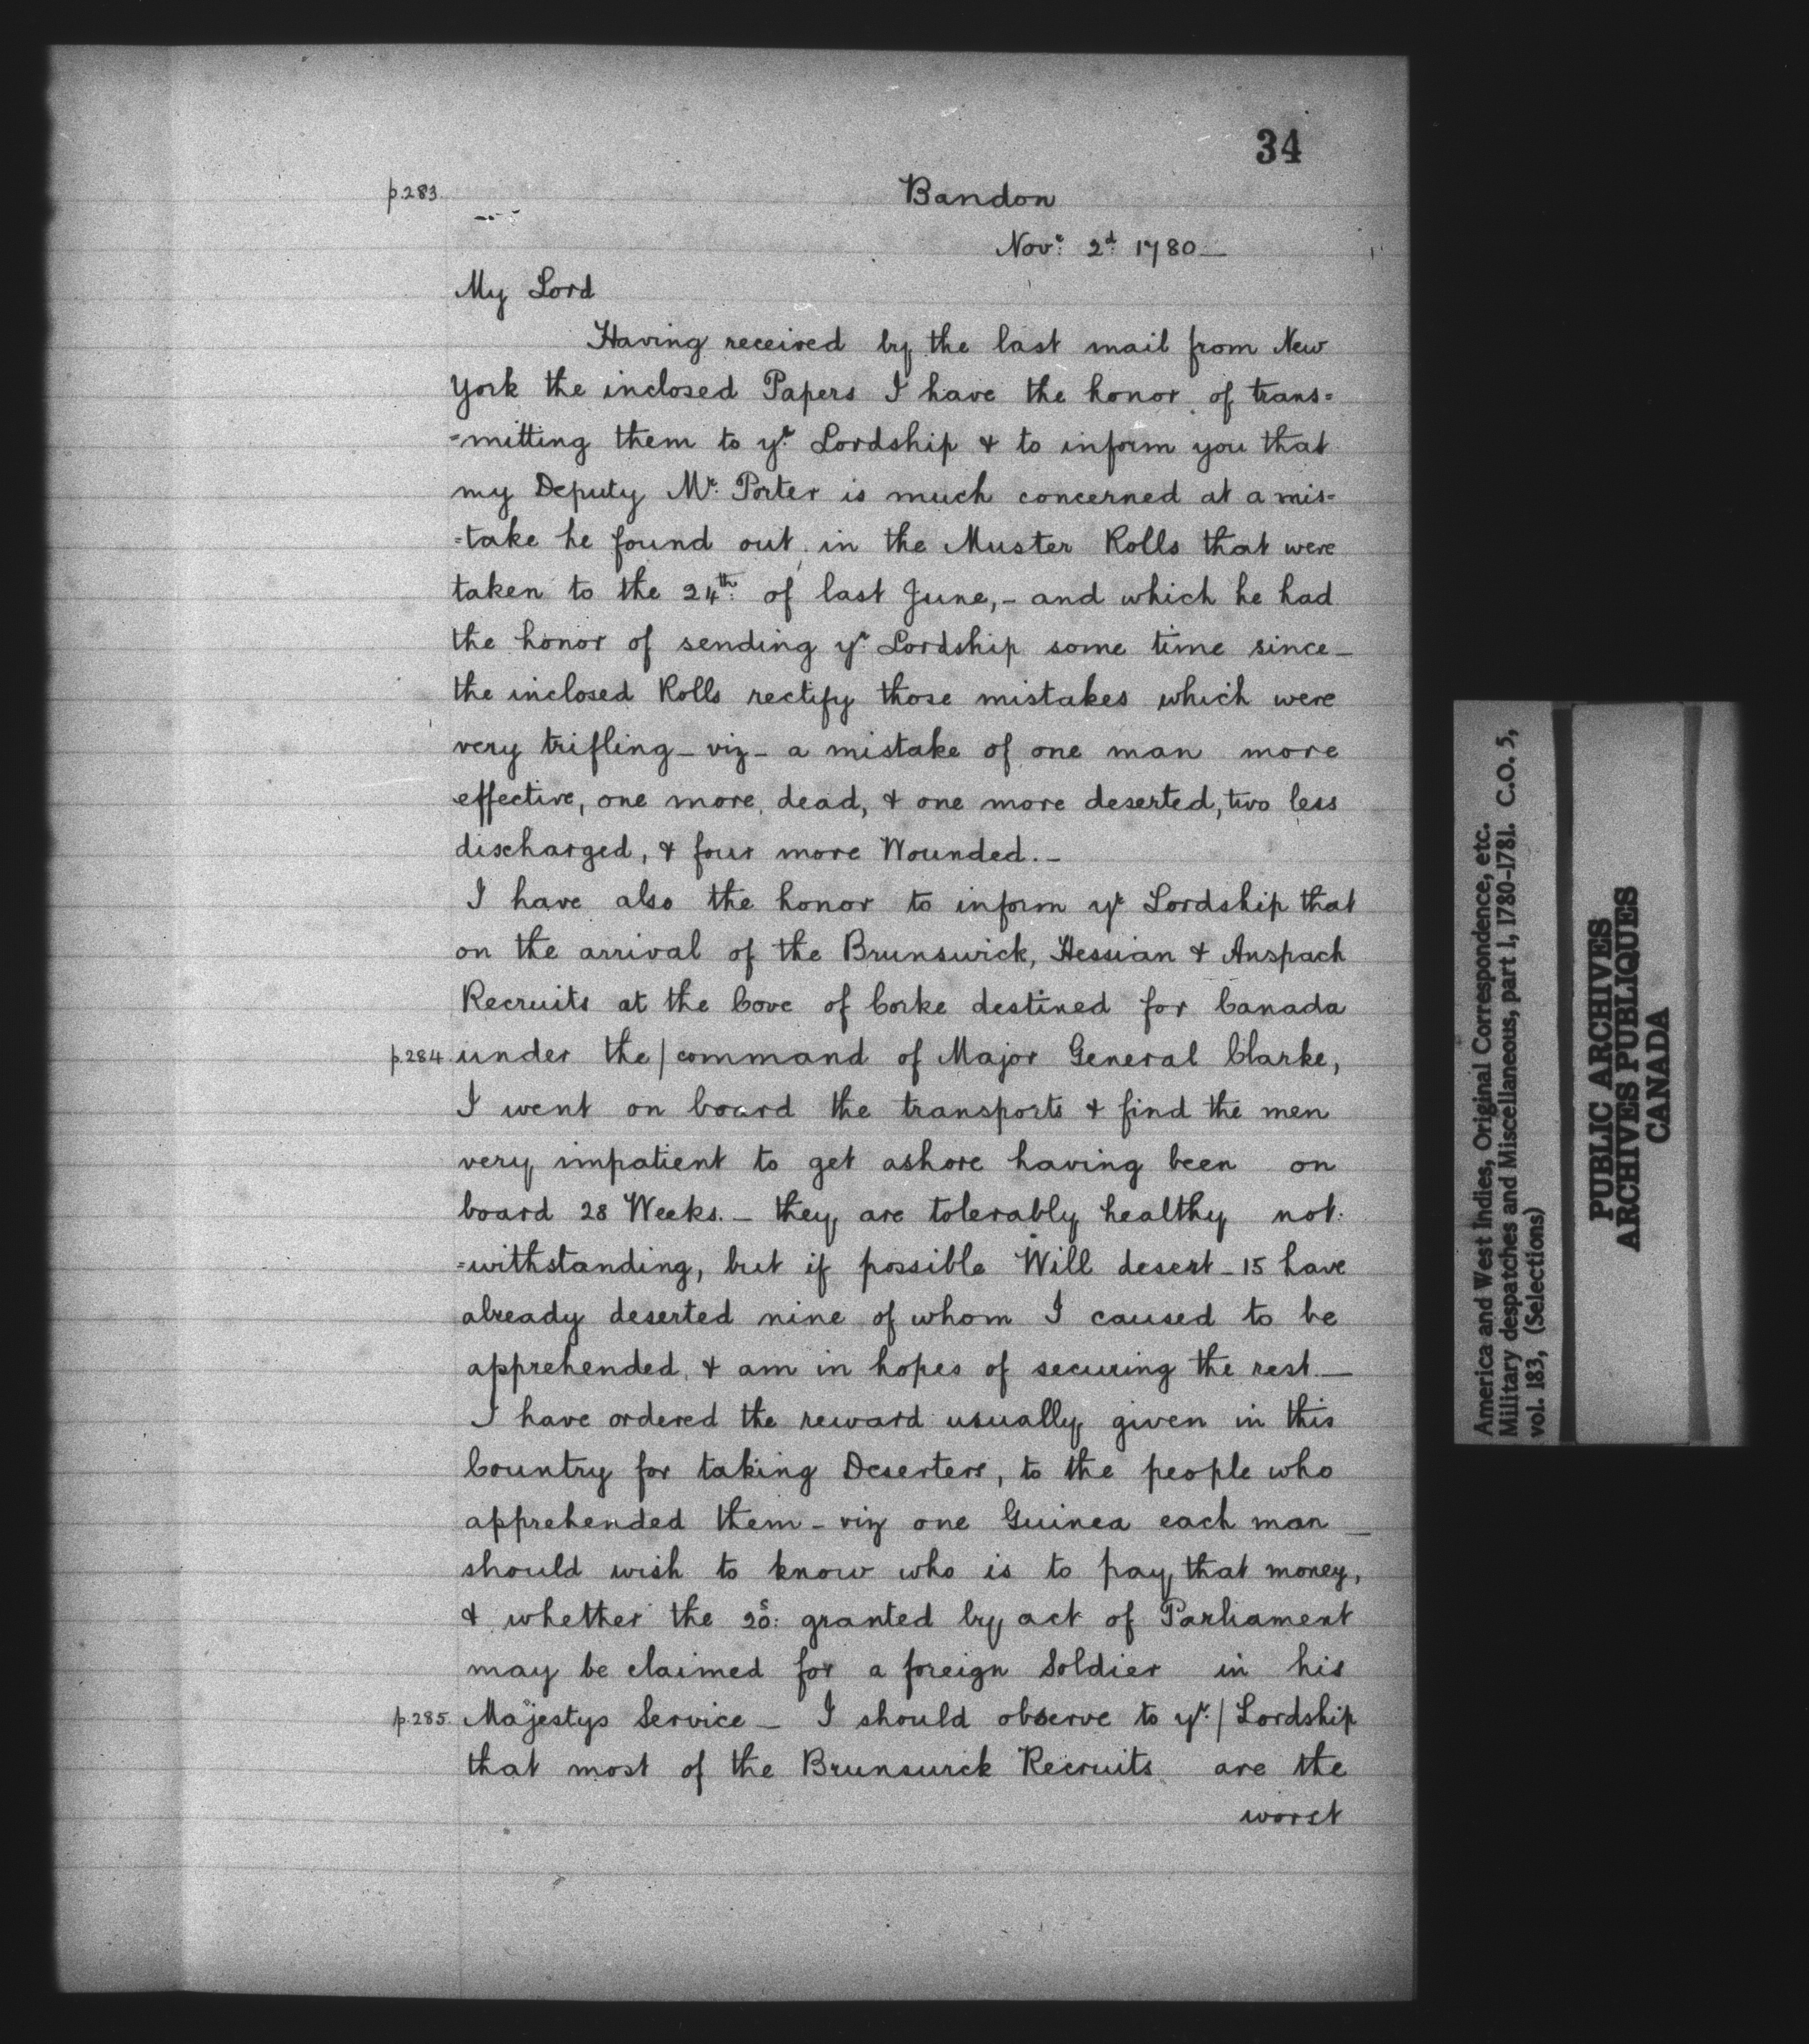 34
p.283
Bandon
Novr: 2d 1780_
My Lord
Having received by the last mail from New
York the inclosed Papers I have the honor of trans=
=mitting them to yr. Lordship & to inform you that
my Deputy Mr. Porter is much concerned at a mis=
=take he found out in the Muster Rolls that were
taken to the 24th: of last June,- and which he had
the honor of sending yr Lordship some time since_
the inclosed Rolls rectify those mistakes which were
very trifling_viz_a mistake of one man more
effective, one more dead, & one more deserted, two less
discharged, & four more Wounded._
I have also the honor to inform yr Lordship that
on the arrival of the Brunswick, Hessian & Anspach
Recruits at the Cove of Corke destined for Canada
p.284 under the/command of Major General Clarke,
I went on board the transports & find the men
very impatient to get ashore having been on
board 28 Weeks._ they are tolerably healthy not:
=withstanding, but if possible Will desert_15 have
already deserted nine of whom I caused to be
apprehended, & am in hopes of securing the rest._
I have ordered the reward usually given in this
Country for taking Deserters, to the people who
apprehended them_viz one Guinea each man_
should wish to know who is to pay that money,
& whether the 20s: granted by act of Parliament
may be claimed for a foreign Soldier in his
p.285. Majestys Service_ I should observe to yr:/Lordship
that most of the Brunswick Recruits are the
worst
America and West Indies, Original Correspondence, etc.
Military despatches and Miscellaneous, part 1, 1780-1781. C.O. 5,
vol. 183, (Selections)
PUBLIC ARCHIVES
ARCHIVES PUBLIQUES
CANADA